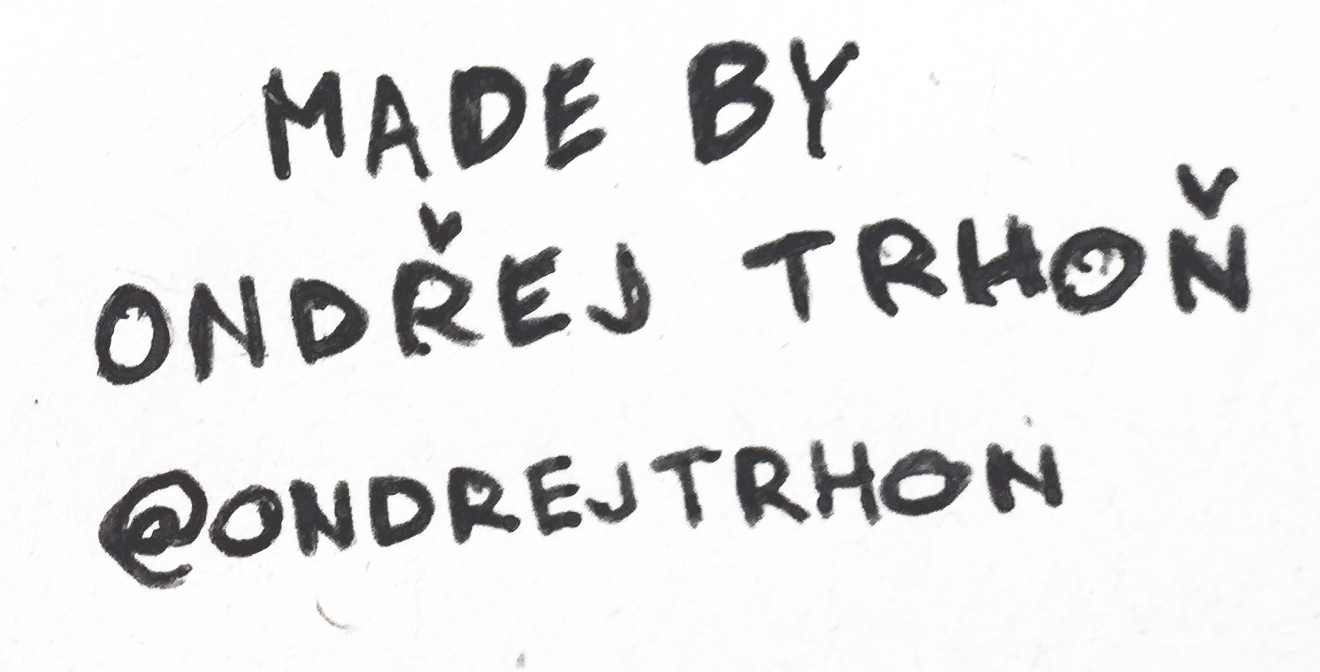 MADE BY
ONDŘEJ TRHOŇ
@ONDREJTRHON